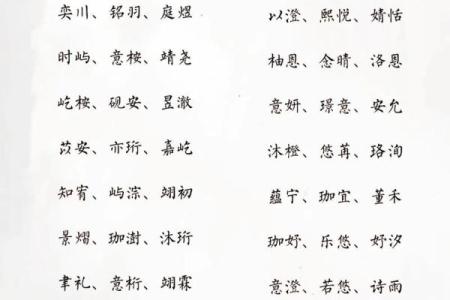 奕川、铭羽、庭煜 以澄、熙悦、婧恬
时屿、意桉、靖尧 柚恩、念晴、洛恩
屹桉、砚安、昱澈 意妍、璟意、安允
苡安、亦珩、嘉屹 沐橙、悠苒、珞洵
知宥、屿淙、翊初 蕴宁、珈宜、董禾
景熠、珈澍、沐珩 珈妤、乐悠、妤汐
聿礼、意桁、翊霖 意澄、若悠、诗雨